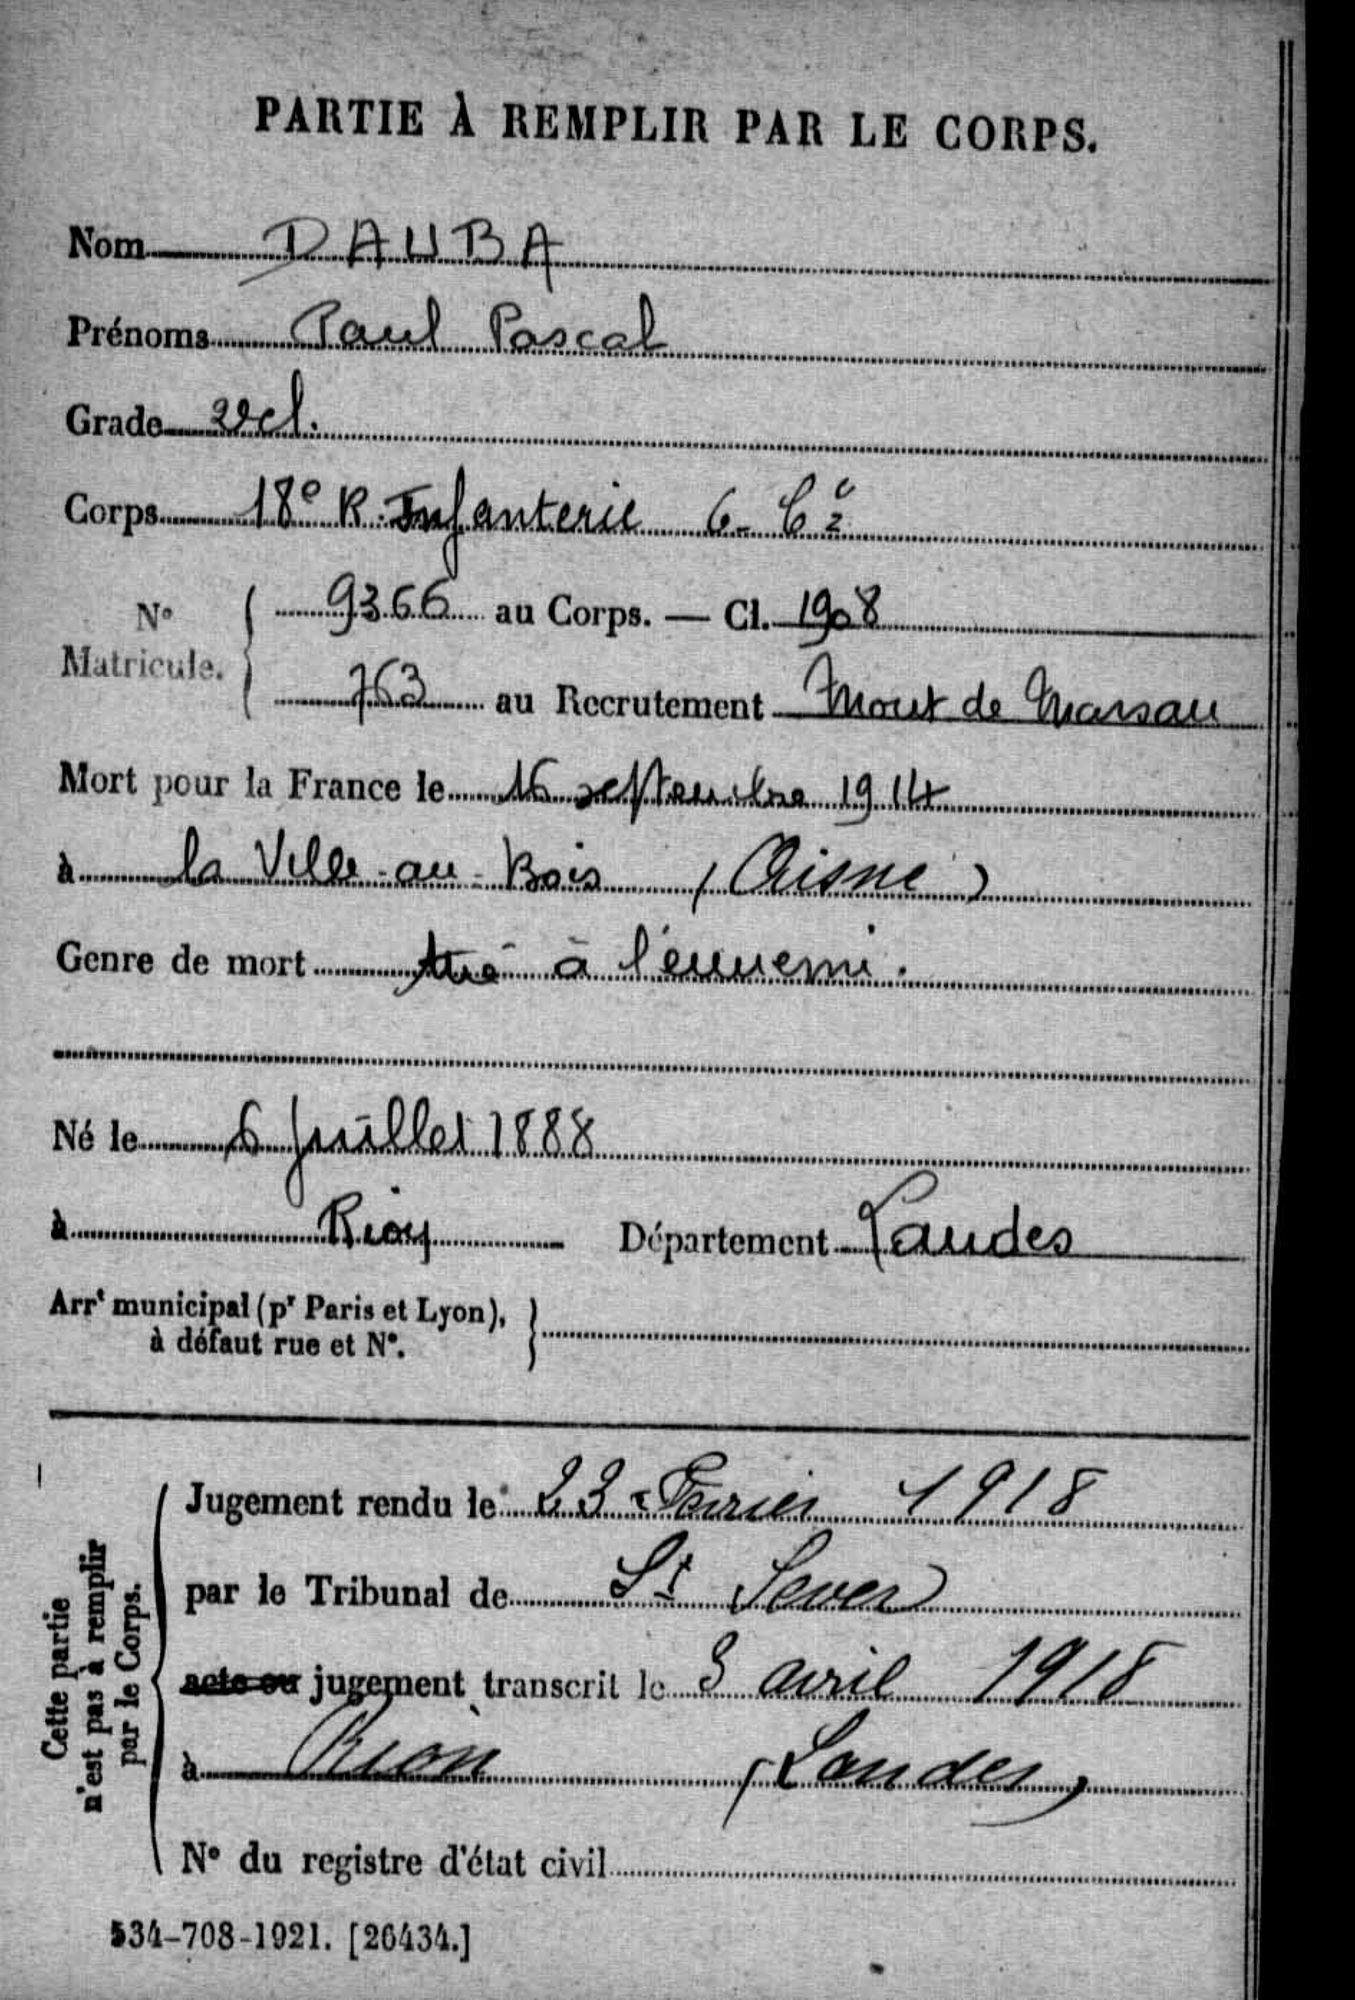 PARTIE À REMPLIR PAR LE CORPS.
Nom DAUBA
Prénoms Paul Pascal
Grade 2e cl.
Corps 18e R. Infanterie 6e Cie
N° Matricule. 9366 au Corps. — Cl. 1908
763 au Recrutement Mont de Marsan
Mort pour la France le 16 septembre 1914
à la Ville-au-Bois (Aisne)
Genre de mort tué à l'ennemi.
Né le 6 Juillet 1888
à Rion Département Landes
Arrt municipal (pr Paris et Lyon),
à défaut rue et N°.
Cette partie
n'est pas à remplir
par le Corps.
Jugement rendu le 23 Février 1918
par le Tribunal de St Sever
acte ou jugement transcrit le 3 avril 1918
à Rion (Landes)
N° du registre d'état civil
534-708-1921. [26434.]